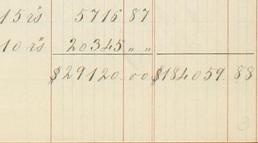 15 r's 5716 87
10 r's 20345 " "
$29120.00 $184059.88